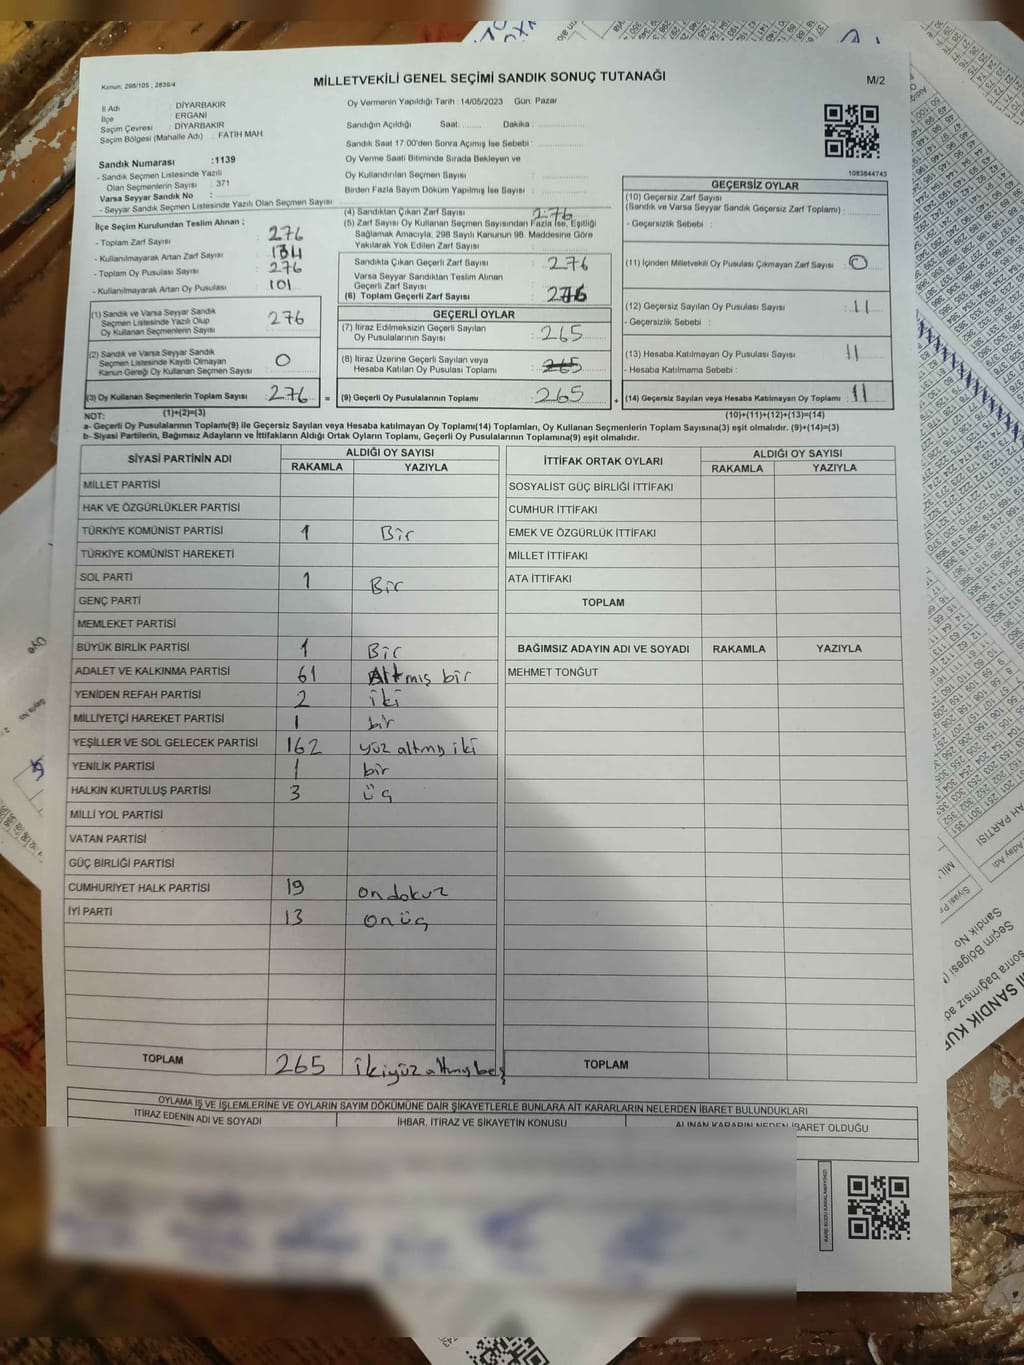 MİLLETVEKİLİ GENEL SEÇİMİ SANDIK SONUÇ TUTANAĞI
M/2
Kanun: 298/105 , 2839/4
İl Adı : DİYARBAKIR
İlçe : ERGANİ
Seçim Çevresi : DİYARBAKIR
Seçim Bölgesi (Mahalle Adı) : FATİH MAH.
Sandık Numarası :1139
- Sandık Seçmen Listesinde Yazılı
Olan Seçmenlerin Sayısı : 371
Varsa Seyyar Sandık No :
- Seyyar Sandık Seçmen Listesinde Yazılı Olan Seçmen Sayısı
Oy Vermenin Yapıldığı Tarih : 14/05/2023 Gün: Pazar
Sandığın Açıldığı Saat: Dakika :
Sandık Saat 17.00'den Sonra Açılmış İse Sebebi :
Oy Verme Saati Bitiminde Sırada Bekleyen ve
Oy Kullandırılan Seçmen Sayısı :
Birden Fazla Sayım Döküm Yapılmış İse Sayısı :
1083844743
İlçe Seçim Kurulundan Teslim Alınan ;
- Toplam Zarf Sayısı : 276
- Kullanılmayarak Artan Zarf Sayısı : 134
- Toplam Oy Pusulası Sayısı : 276
- Kullanılmayarak Artan Oy Pusulası : 101
(1) Sandık ve Varsa Seyyar Sandık
Seçmen Listesinde Yazılı Olup
Oy Kullanan Seçmenlerin Sayısı : 276
(2) Sandık ve Varsa Seyyar Sandık
Seçmen Listesinde Kayıtlı Olmayan
Kanun Gereği Oy Kullanan Seçmen Sayısı : 0
(3) Oy Kullanan Seçmenlerin Toplam Sayısı : 276 =
(1)+(2)=(3)
(4) Sandıktan Çıkan Zarf Sayısı 276
(5) Zarf Sayısı Oy Kullanan Seçmen Sayısından Fazla İse, Eşitliği
Sağlamak Amacıyla, 298 Sayılı Kanunun 98. Maddesine Göre
Yakılarak Yok Edilen Zarf Sayısı :
Sandıkta Çıkan Geçerli Zarf Sayısı : 276
Varsa Seyyar Sandıktan Teslim Alınan
Geçerli Zarf Sayısı :
(6) Toplam Geçerli Zarf Sayısı : 276
GEÇERLİ OYLAR
(7) İtiraz Edilmeksizin Geçerli Sayılan
Oy Pusulalarının Sayısı : 265
(8) İtiraz Üzerine Geçerli Sayılan veya
Hesaba Katılan Oy Pusulası Toplamı : 265
(9) Geçerli Oy Pusulalarının Toplamı : 265 +
GEÇERSİZ OYLAR
(10) Geçersiz Zarf Sayısı
(Sandık ve Varsa Seyyar Sandık Geçersiz Zarf Toplamı) :
- Geçersizlik Sebebi :
(11) İçinden Milletvekili Oy Pusulası Çıkmayan Zarf Sayısı : 0
(12) Geçersiz Sayılan Oy Pusulası Sayısı : 11
- Geçersizlik Sebebi :
(13) Hesaba Katılmayan Oy Pusulası Sayısı : 11
- Hesaba Katılmama Sebebi :
(14) Geçersiz Sayılan veya Hesaba Katılmayan Oy Toplamı : 11
(10)+(11)+(12)+(13)=(14)
NOT:
a- Geçerli Oy Pusulalarının Toplamı(9) ile Geçersiz Sayılan veya Hesaba katılmayan Oy Toplamı(14) Toplamları, Oy Kullanan Seçmenlerin Toplam Sayısına(3) eşit olmalıdır. (9)+(14)=(3)
b- Siyasi Partilerin, Bağımsız Adayların ve İttifakların Aldığı Ortak Oyların Toplamı, Geçerli Oy Pusulalarının Toplamına(9) eşit olmalıdır.
SİYASİ PARTİNİN ADI ALDIĞI OY SAYISI
RAKAMLA YAZIYLA
MİLLET PARTİSİ
HAK VE ÖZGÜRLÜKLER PARTİSİ
TÜRKİYE KOMÜNİST PARTİSİ 1 Bir
TÜRKİYE KOMÜNİST HAREKETİ
SOL PARTİ 1 Bir
GENÇ PARTİ
MEMLEKET PARTİSİ
BÜYÜK BİRLİK PARTİSİ 1 Bir
ADALET VE KALKINMA PARTİSİ 61 Altmış bir
YENİDEN REFAH PARTİSİ 2 iki
MİLLİYETÇİ HAREKET PARTİSİ 1 bir
YEŞİLLER VE SOL GELECEK PARTİSİ 162 yüz altmış iki
YENİLİK PARTİSİ 1 bir
HALKIN KURTULUŞ PARTİSİ 3 üç
MİLLİ YOL PARTİSİ
VATAN PARTİSİ
GÜÇ BİRLİĞİ PARTİSİ
CUMHURİYET HALK PARTİSİ 19 ondokuz
İYİ PARTİ 13 onüç
TOPLAM 265 ikiyüz altmış beş
İTTİFAK ORTAK OYLARI ALDIĞI OY SAYISI
RAKAMLA YAZIYLA
SOSYALİST GÜÇ BİRLİĞİ İTTİFAKI
CUMHUR İTTİFAKI
EMEK VE ÖZGÜRLÜK İTTİFAKI
MİLLET İTTİFAKI
ATA İTTİFAKI
TOPLAM
BAĞIMSIZ ADAYIN ADI VE SOYADI RAKAMLA YAZIYLA
MEHMET TONĞUT
TOPLAM
OYLAMA İŞ VE İŞLEMLERİNE VE OYLARIN SAYIM DÖKÜMÜNE DAİR ŞİKAYETLERLE BUNLARA AİT KARARLARIN NELERDEN İBARET BULUNDUKLARI
İTİRAZ EDENİN ADI VE SOYADI İHBAR, İTİRAZ VE ŞİKAYETİN KONUSU ALINAN KARARIN NEDEN İBARET OLDUĞU